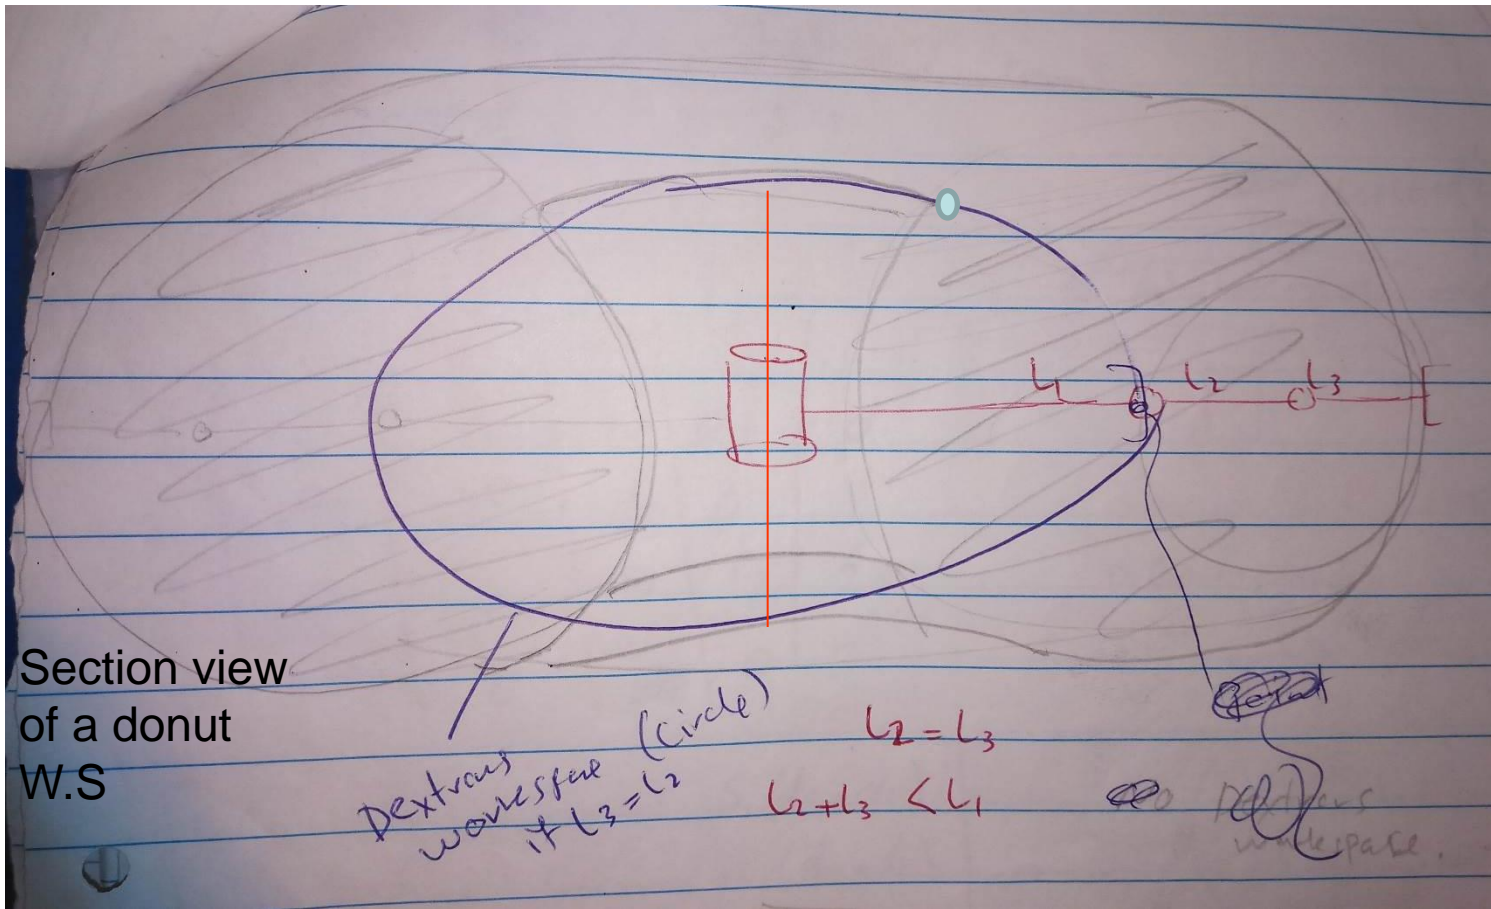 L1
L2
L3
Section view
of a donut
W.S
Dextrous
workspace (circle)
if L3 = L2
L2 = L3
L2 + L3 < L1
workspace.